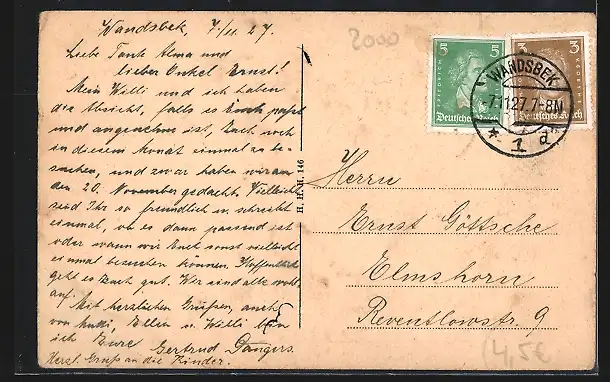 Wandsbek, 7/11. 27.
Liebe Tante Alma und
lieber Onkel Ernst!
Mein Willi und ich haben
die Absicht, falls es Euch paßt
und angenehm ist, Euch noch
in diesem Monat einmal zu be-
suchen, und zwar haben wir an
den 20. November gedacht. Vielleicht
seid Ihr so freundlich u. schreibt
einmal, ob es dann passend ist
oder wann wir Euch sonst vielleicht
einmal besuchen können. Hoffentlich
geht es Euch gut. Wir sind alle wohl-
auf.
Mit herzlichen Grüßen, auch
von Mutti, Ellen u. Willi bin
ich Eure Gertrud Dangers.
Herzl. Gruß an die Kinder.
H. H. H. 146
2000
5 5
Deutsches Reich
3 3
Deutsches Reich
WANDSBEK
-7.11.27.7-8N
* 1 d
Herrn
Ernst Göttsche
Elmshorn
Reventlowstr. 9
14,5€